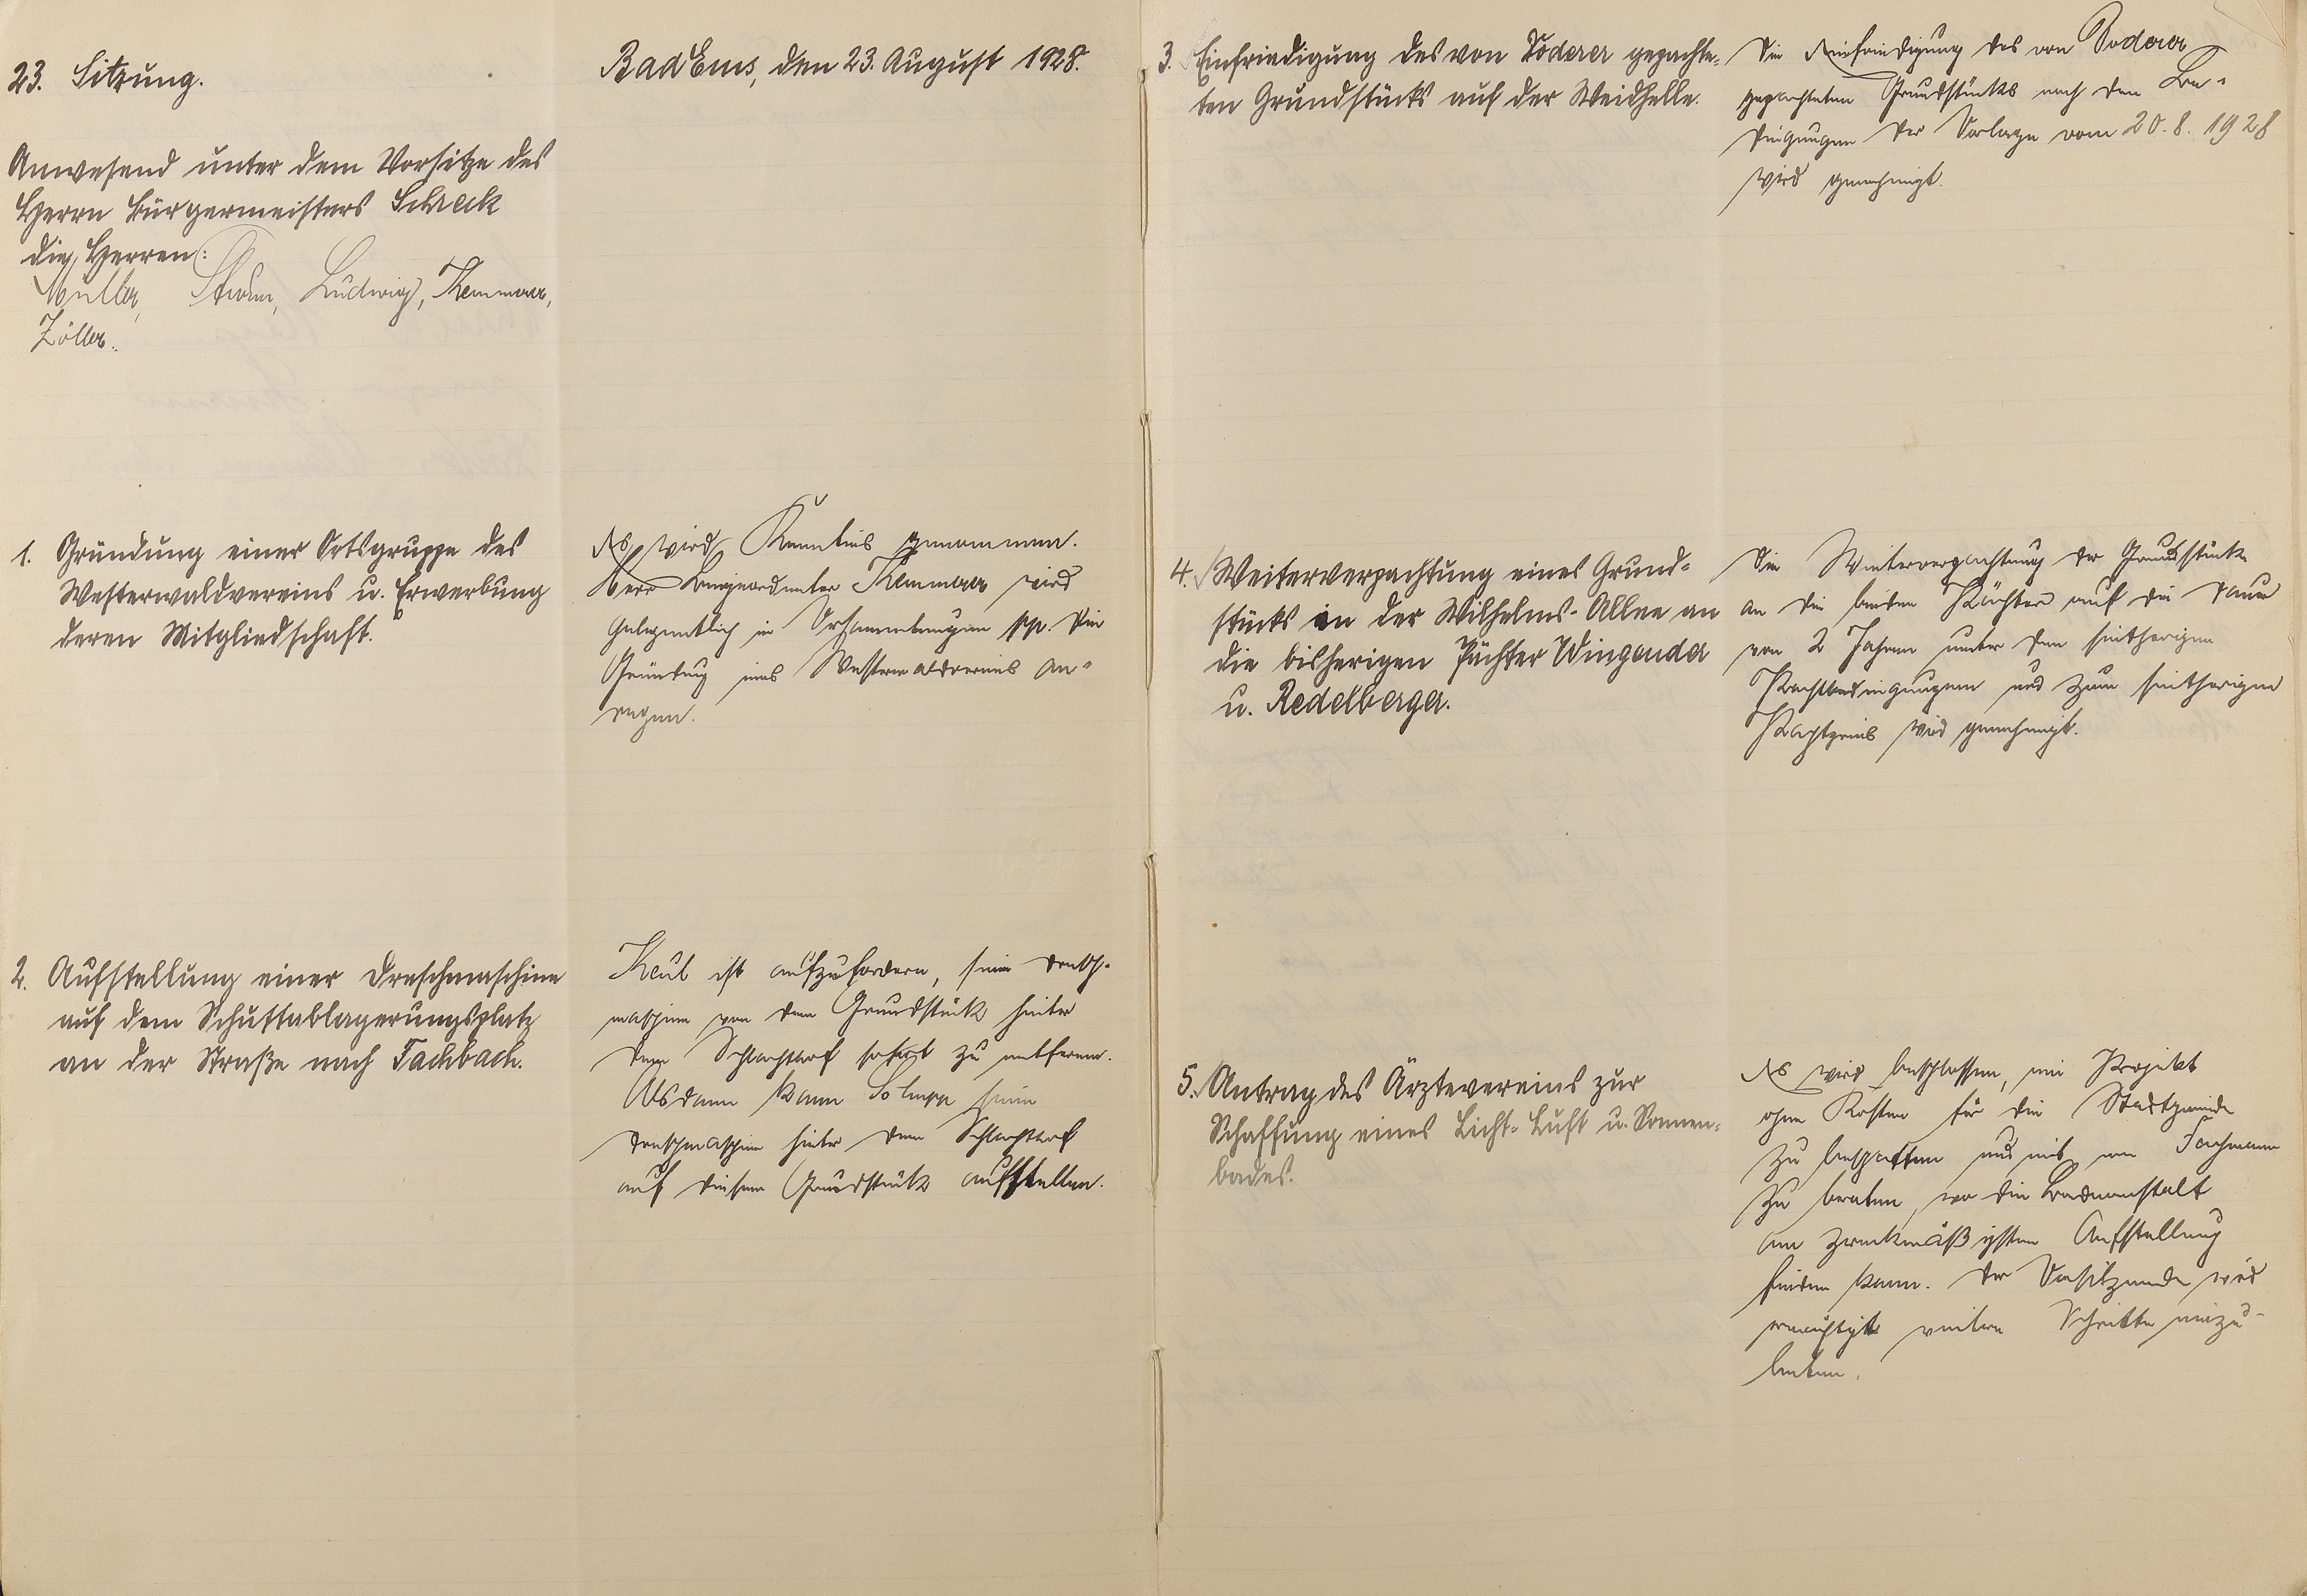 23. Sitzung.
Bad Ems, den 23. August 1928.
Anwesend unter dem Vorsitze des
Herrn Bürgermeisters Schreck
die Herren:
Müller, Sturm, Ludwig, Kemmerer,
Zöller.
1. Gründung einer Ortsgruppe des
Westerwaldvereins u. Erwerbung
deren Mitgliedschaft.
Es wird Kenntnis genommen.
Herr Beigeordneter Kemmerer wird
gelegentlich in Versammlungen pp. die
Gründung eines Westerwaldvereins an-
regen.
2. Aufstellung einer Dreschmaschine
auf dem Schuttablagerungsplatz
an der Straße nach Fachbach.
Keul ist aufzufordern, seine Dresch-
maschine von dem Grundstück hinter
dem Schlachthof sofort zu entfernen.
Alsdann kann seine
Dreschmaschine hinter dem Schlachthof
auf diesem Grundstück aufstellen.
3. Einfriedigung des von Döderer gepachte-
ten Grundstücks auf der Weidhelle.
Die Einfriedigung des von Doderer
gepachteten Grundstücks nach den Be-
dingungen der Vorlage vom 20.8.1928
wird genehmigt.
4. Weiterverpachtung eines Grund-
stücks in der Wilhelms-Allee an
die bisherigen Pächter Wingender
u. Redelberger.
Die Weiterverpachtung der Grundstücke
an die beiden Pächter auf die Dauer
von 2 Jahren unter den seitherigen
Pachtbedingungen und zum seitherigen
Pachtpreis wird genehmigt.
5. Antrag des Ärztevereins zur
Schaffung eines Licht- Luft u. Sonnen-
bades.
Es wird beschlossen, ein Projekt
ohne Kosten für die Stadtgemeinde
zu beschaffen und mit einem Fachmann
zu beraten, wo die Badeanstalt
am zweckmäßigsten Aufstellung
finden kann. Der Vorsitzende wird
ermächtigt weitere Schritte einzu-
leiten.